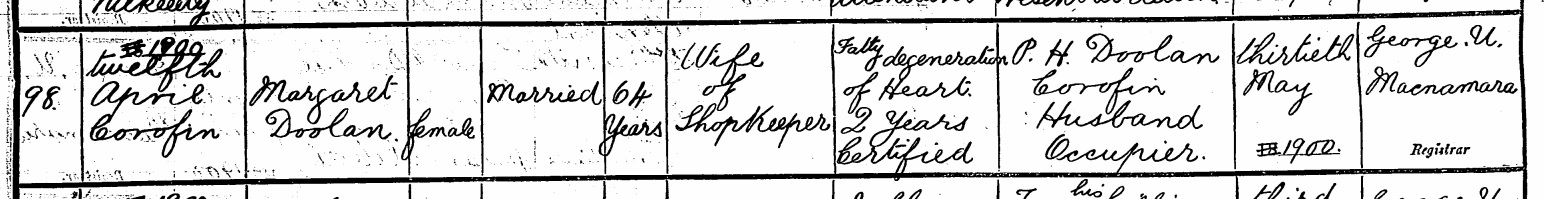 98.
1900
twelfth
April
Corofin
Margaret
Doolan.
female
Married
64
Years
Wife
of
Shopkeeper
Fatty degeneration
of Heart.
2 Years
Certified
P. H. Doolan
Corofin
Husband
Occupier.
thirtieth
May
1900.
George. U.
Macnamara
Registrar
his
third